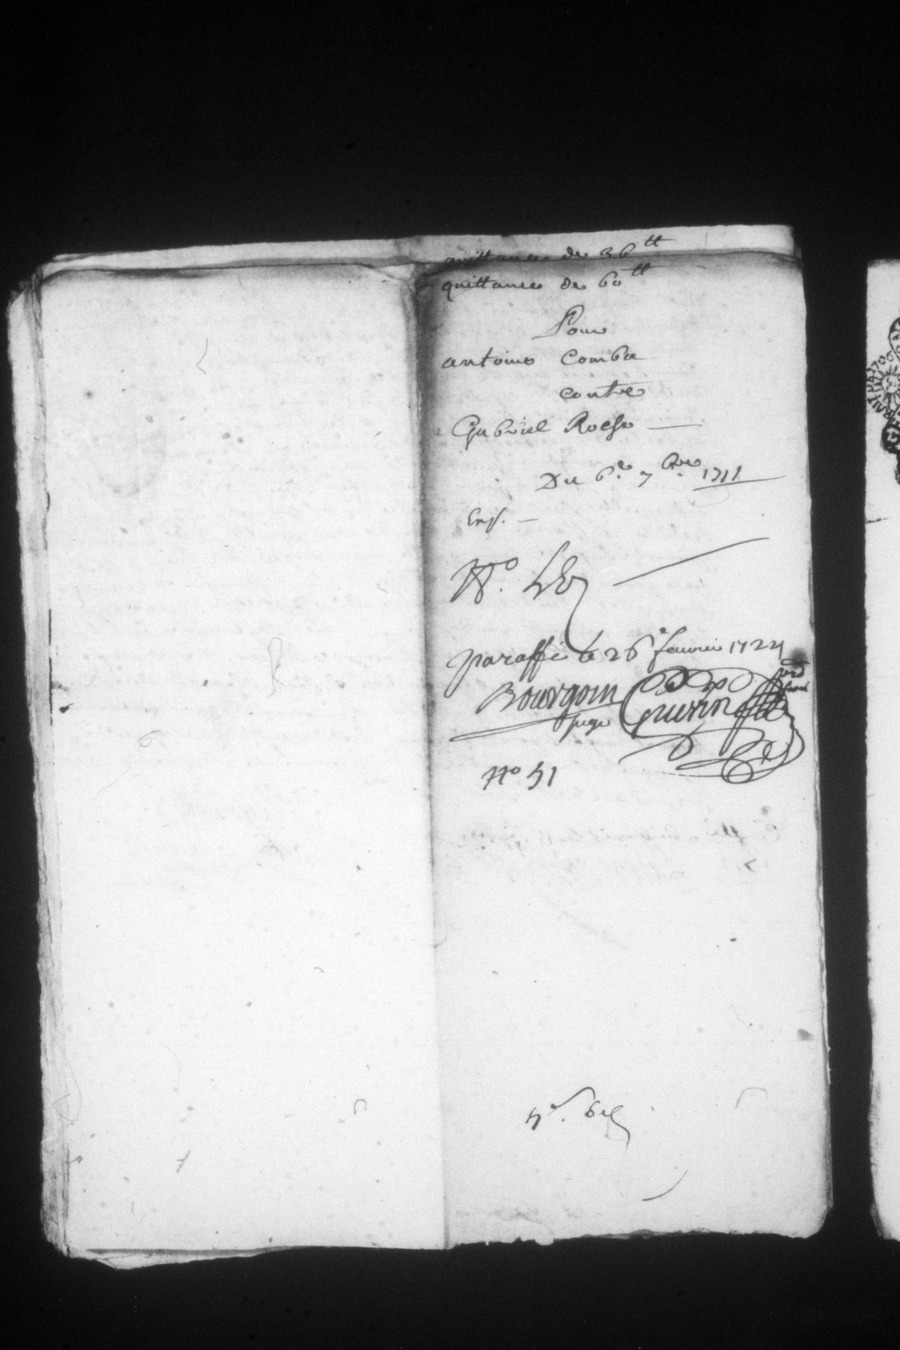 quittance de 36tt
quittance de 60tt
Pour
antoine Combe
contre
Gabriel Roche
Du 6e 7bre 1711
N°.
paraffé le 26e feuvrier 1724
Bourgoin Guerin
juge
N° 51